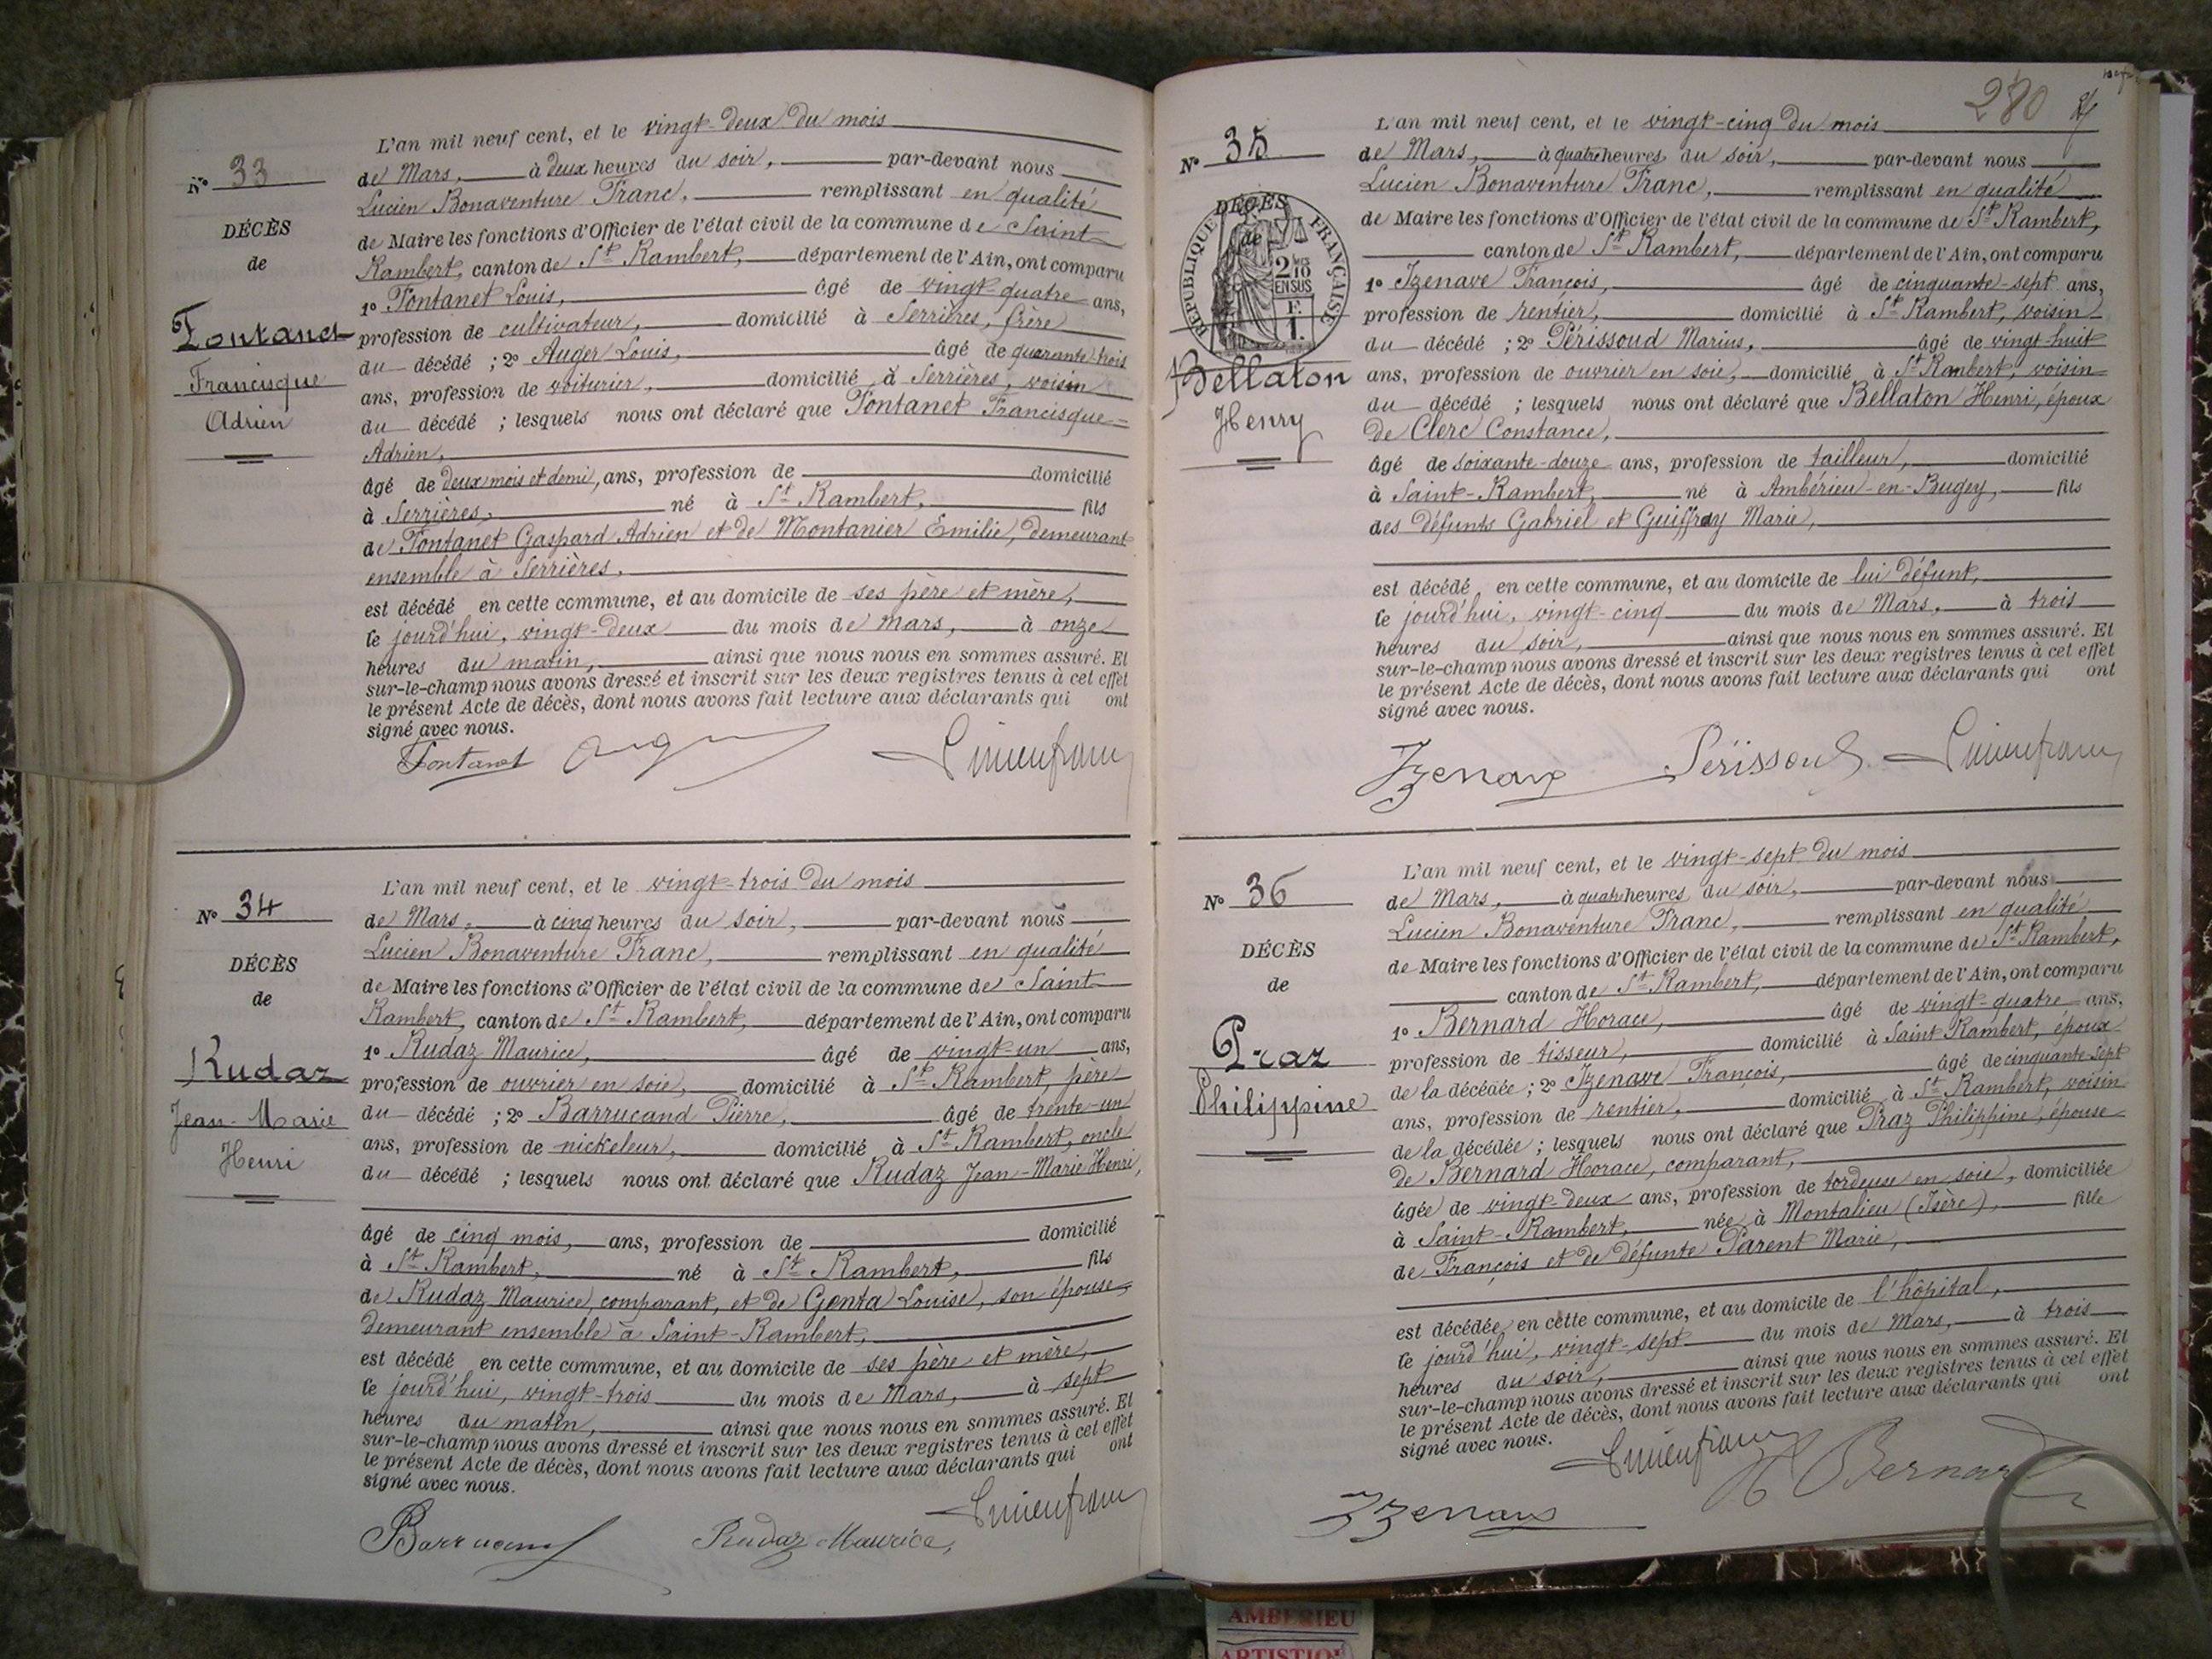 L'an mil neuf cent, et le vingt-deux du mois
N° 33
de Mars, à deux heures du soir, par-devant nous
Lucien Bonaventure Franc, remplissant en qualité
DÉCÈS
de Maire les fonctions d'Officier de l'état civil de la commune de Saint-
de
Rambert, canton de St Rambert, département de l'Ain, ont comparu
1° Fontanet Louis, âgé de vingt-quatre ans,
Fontanet
profession de cultivateur, domicilié à Serrières, frère
Francisque
du décédé ; 2° Auger Louis, âgé de quarante-trois
Adrien
ans, profession de voiturier, domicilié à Serrières, voisin
du décédé ; lesquels nous ont déclaré que Fontanet Francisque=
Adrien,
âgé de deux mois et demi, ans, profession de domicilié
à Serrières, né à St Rambert, fils
de Fontanet Gaspard Adrien et de Montanier Emilie, demeurant
ensemble à Serrières,
est décédé en cette commune, et au domicile de ses père et mère,
le jourd'hui, vingt-deux du mois de Mars, à onze
heures du matin, ainsi que nous nous en sommes assuré. Et
sur-le-champ nous avons dressé et inscrit sur les deux registres tenus à cet effet
le présent Acte de décès, dont nous avons fait lecture aux déclarants qui ont
signé avec nous.
Fontanet
L'an mil neuf cent, et le vingt-trois du mois
N° 34
de Mars, à cinq heures du soir, par-devant nous
Lucien Bonaventure Franc, remplissant en qualité
DÉCÈS
de Maire les fonctions d'Officier de l'état civil de la commune de Saint-
de
Rambert, canton de St Rambert, département de l'Ain, ont comparu
1° Rudaz Maurice, âgé de vingt-un ans,
Rudaz
profession de ouvrier en soie, domicilié à St Rambert, père
Jean-Marie
du décédé ; 2° Barrucand Pierre, âgé de trente-un
Henri
ans, profession de nickeleur, domicilié à St Rambert, oncle
du décédé ; lesquels nous ont déclaré que Rudaz Jean-Marie Henri,
âgé de cinq mois, ans, profession de domicilié
à St Rambert, né à St Rambert, fils
de Rudaz Maurice, comparant, et de Genta Louise, son épouse,
demeurant ensemble à Saint-Rambert,
est décédé en cette commune, et au domicile de ses père et mère,
le jourd'hui, vingt-trois du mois de Mars, à sept
heures du matin, ainsi que nous nous en sommes assuré. Et
sur-le-champ nous avons dressé et inscrit sur les deux registres tenus à cet effet
le présent Acte de décès, dont nous avons fait lecture aux déclarants qui ont
signé avec nous.
Barrucand Rudaz Maurice,
280
L'an mil neuf cent, et le vingt-cinq du mois
N° 35
de Mars, à quatre heures du soir, par-devant nous
Lucien Bonaventure Franc, remplissant en qualité
DÉCÈS
de
RÉPUBLIQUE FRANÇAISE
2 10
EN SUS
F.
1.
de Maire les fonctions d'Officier de l'état civil de la commune de St Rambert,
canton de St Rambert, département de l'Ain, ont comparu
1° Izenave François, âgé de cinquante-sept ans,
profession de rentier, domicilié à St Rambert, voisin
Bellaton
du décédé ; 2° Périssoud Marius, âgé de vingt-huit
Henry
ans, profession de ouvrier en soie, domicilié à St Rambert, voisin
du décédé ; lesquels nous ont déclaré que Bellaton Henri, époux
de Clerc Constance,
âgé de soixante-douze ans, profession de tailleur, domicilié
à Saint-Rambert, né à Ambérieu-en-Bugey, fils
des défunts Gabriel et Guiffray Marie,
est décédé en cette commune, et au domicile de lui défunt,
le jourd'hui, vingt-cinq du mois de Mars, à trois
heures du soir, ainsi que nous nous en sommes assuré. Et
sur-le-champ nous avons dressé et inscrit sur les deux registres tenus à cet effet
le présent Acte de décès, dont nous avons fait lecture aux déclarants qui ont
signé avec nous.
Izenave Périssoud
L'an mil neuf cent, et le vingt-sept du mois
N° 36
de Mars, à quatre heures du soir, par-devant nous
Lucien Bonaventure Franc, remplissant en qualité
DÉCÈS
de Maire les fonctions d'Officier de l'état civil de la commune de St Rambert,
de
canton de St Rambert, département de l'Ain, ont comparu
1° Bernard Horace, âgé de vingt-quatre ans,
Praz
profession de tisseur, domicilié à Saint Rambert, époux
Philippine
de la décédée ; 2° Izenave François, âgé de cinquante-sept
ans, profession de rentier, domicilié à St Rambert, voisin
de la décédée ; lesquels nous ont déclaré que Praz Philippine, épouse
de Bernard Horace, comparant,
âgée de vingt-deux ans, profession de tordeuse en soie, domiciliée
à Saint-Rambert, née à Montalieu (Isère), fille
de François et de défunte Parent Marie,
est décédée en cette commune, et au domicile de l'hôpital,
le jourd'hui, vingt-sept du mois de Mars, à trois
heures du soir, ainsi que nous nous en sommes assuré. Et
sur-le-champ nous avons dressé et inscrit sur les deux registres tenus à cet effet
le présent Acte de décès, dont nous avons fait lecture aux déclarants qui ont
signé avec nous.
H Bernard
Izenave
AMBERIEU
ARTISTIQ